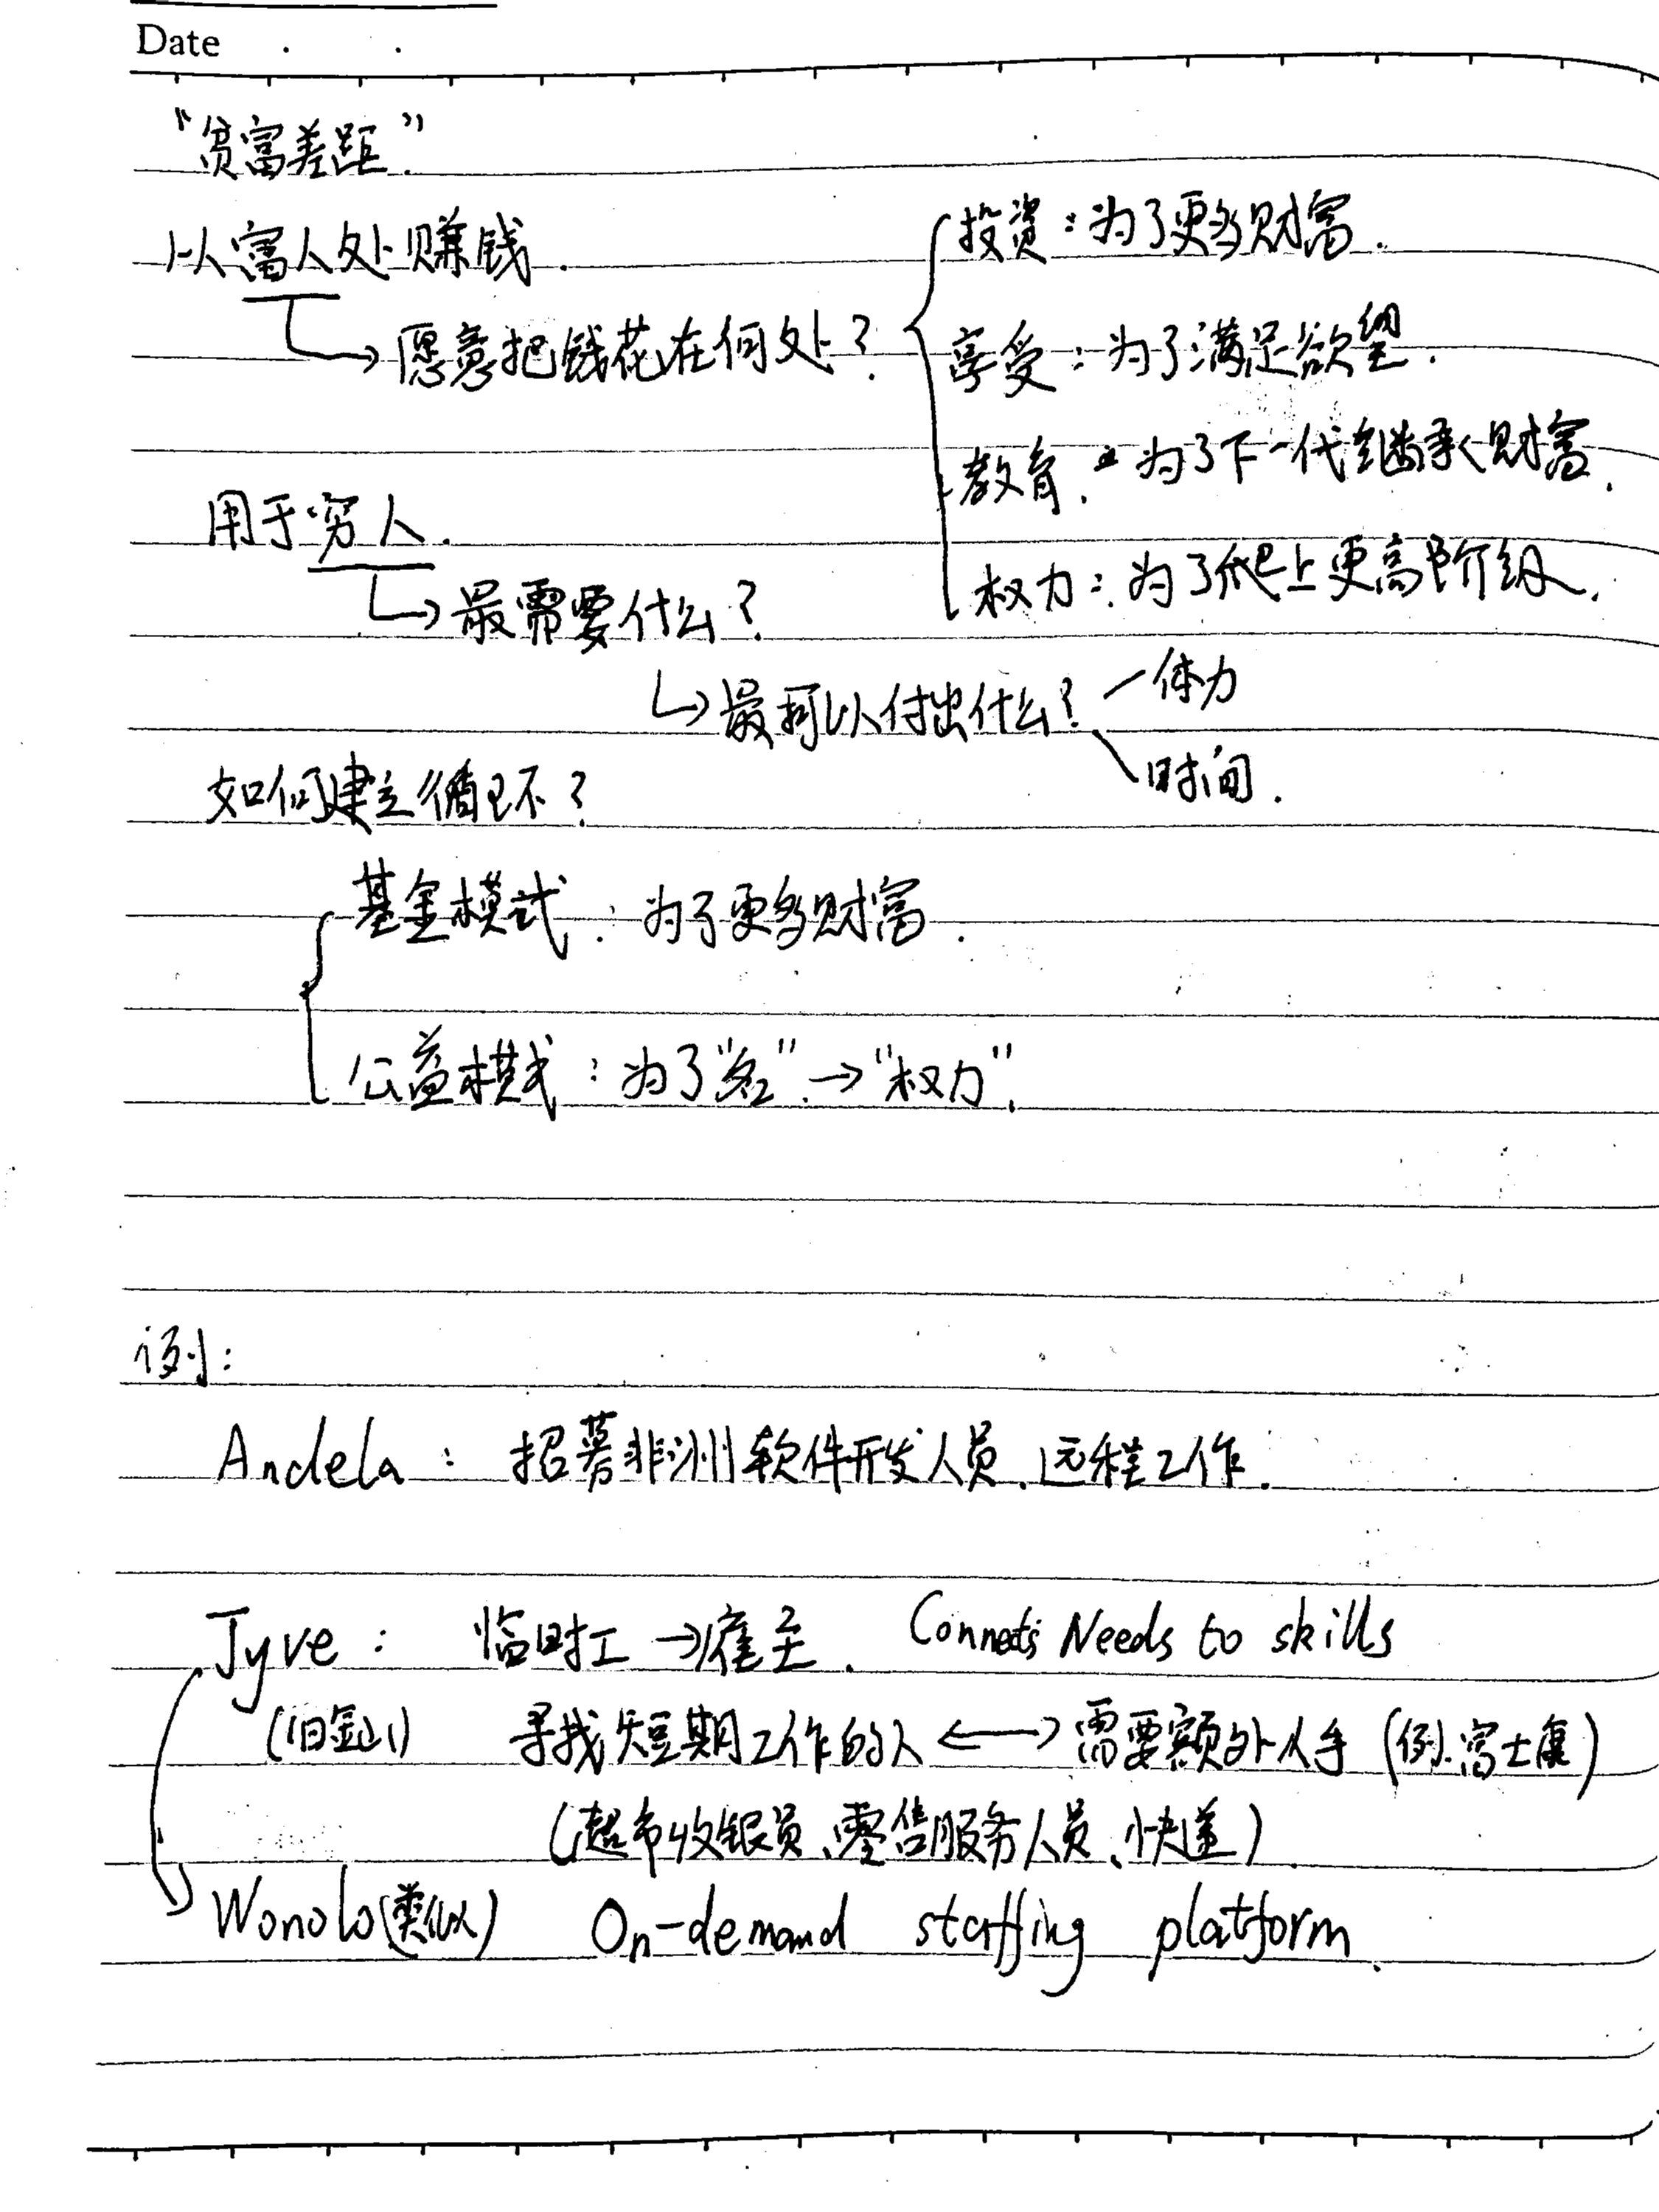 Date
“贫富差距”.
从富人处赚钱.
投资:为了更多财富.
愿意把钱花在何处?
享受:为了满足欲望.
教育:为了下一代继承财富.
用于穷人.
权力:为了爬上更高阶级.
最需要什么?
最可以付出什么?
体力
时间.
如何建立循环?
基金模式:为了更多财富.
公益模式:为了“名”→“权力”.
例:
Andela: 招募非洲软件开发人员、远程工作.
Jyve: 临时工→雇主. Connects Needs to skills
(旧金山) 寻找短期工作的人 ⟷ 需要额外人手 (例.富士康)
(超市收银员、零售服务人员、快递)
Wonolo(类似) On-demand staffing platform.